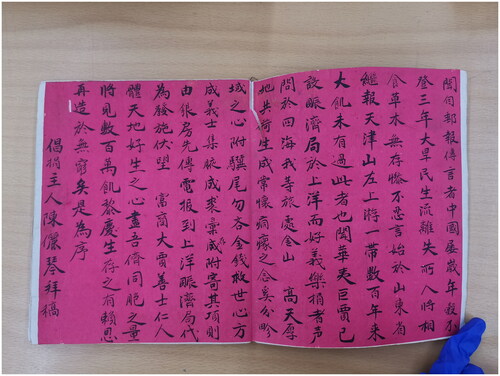 閱報傳言者中國屢歲年穀不
登三年大旱民生流離失所人將相
食草木無存慘不忍言始於山東省
繼報天津山左上游一帶數百年來
大飢未有過此者也聞華夷巨賈已
設賑濟局於上洋而好義樂捐者聲
聞於四海我等處金山 高天厚
地共荷生成常懷痌瘝之念奚分畛
域之心附驥尾勿吝金錢救世心方
成義士集腋成裘彙成附寄其項則
由張房先傳電報到上洋賑濟局代
為發施伏望 富商大賈善士仁人
體天地好生之心盡吾儕同胞之量
將見數百萬飢黎慶生存之有賴思
再造於無窮矣是為序
倡捐主人陳儷琴拜稿